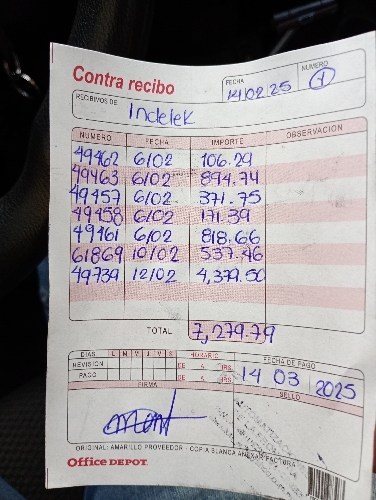 Contra recibo
FECHA
14.02.25
NUMERO
4
RECIBIMOS DE
Indelek
NUMERO FECHA IMPORTE OBSERVACION
49462 6/02 106.29
49463 6/02 894.74
49457 6/02 371.75
49458 6/02 171.39
49461 6/02 818.66
61869 10/02 537.46
49739 12/02 4,379.50
TOTAL 7,279.79
DIAS L M M J V S HORARIO FECHA DE PAGO
REVISION DE A HRS
PAGO DE A HRS
14 03 2025
FIRMA SELLO
ORIGINAL: AMARILLO PROVEEDOR - COPIA BLANCA ANEXAR FACTURA
Office DEPOT